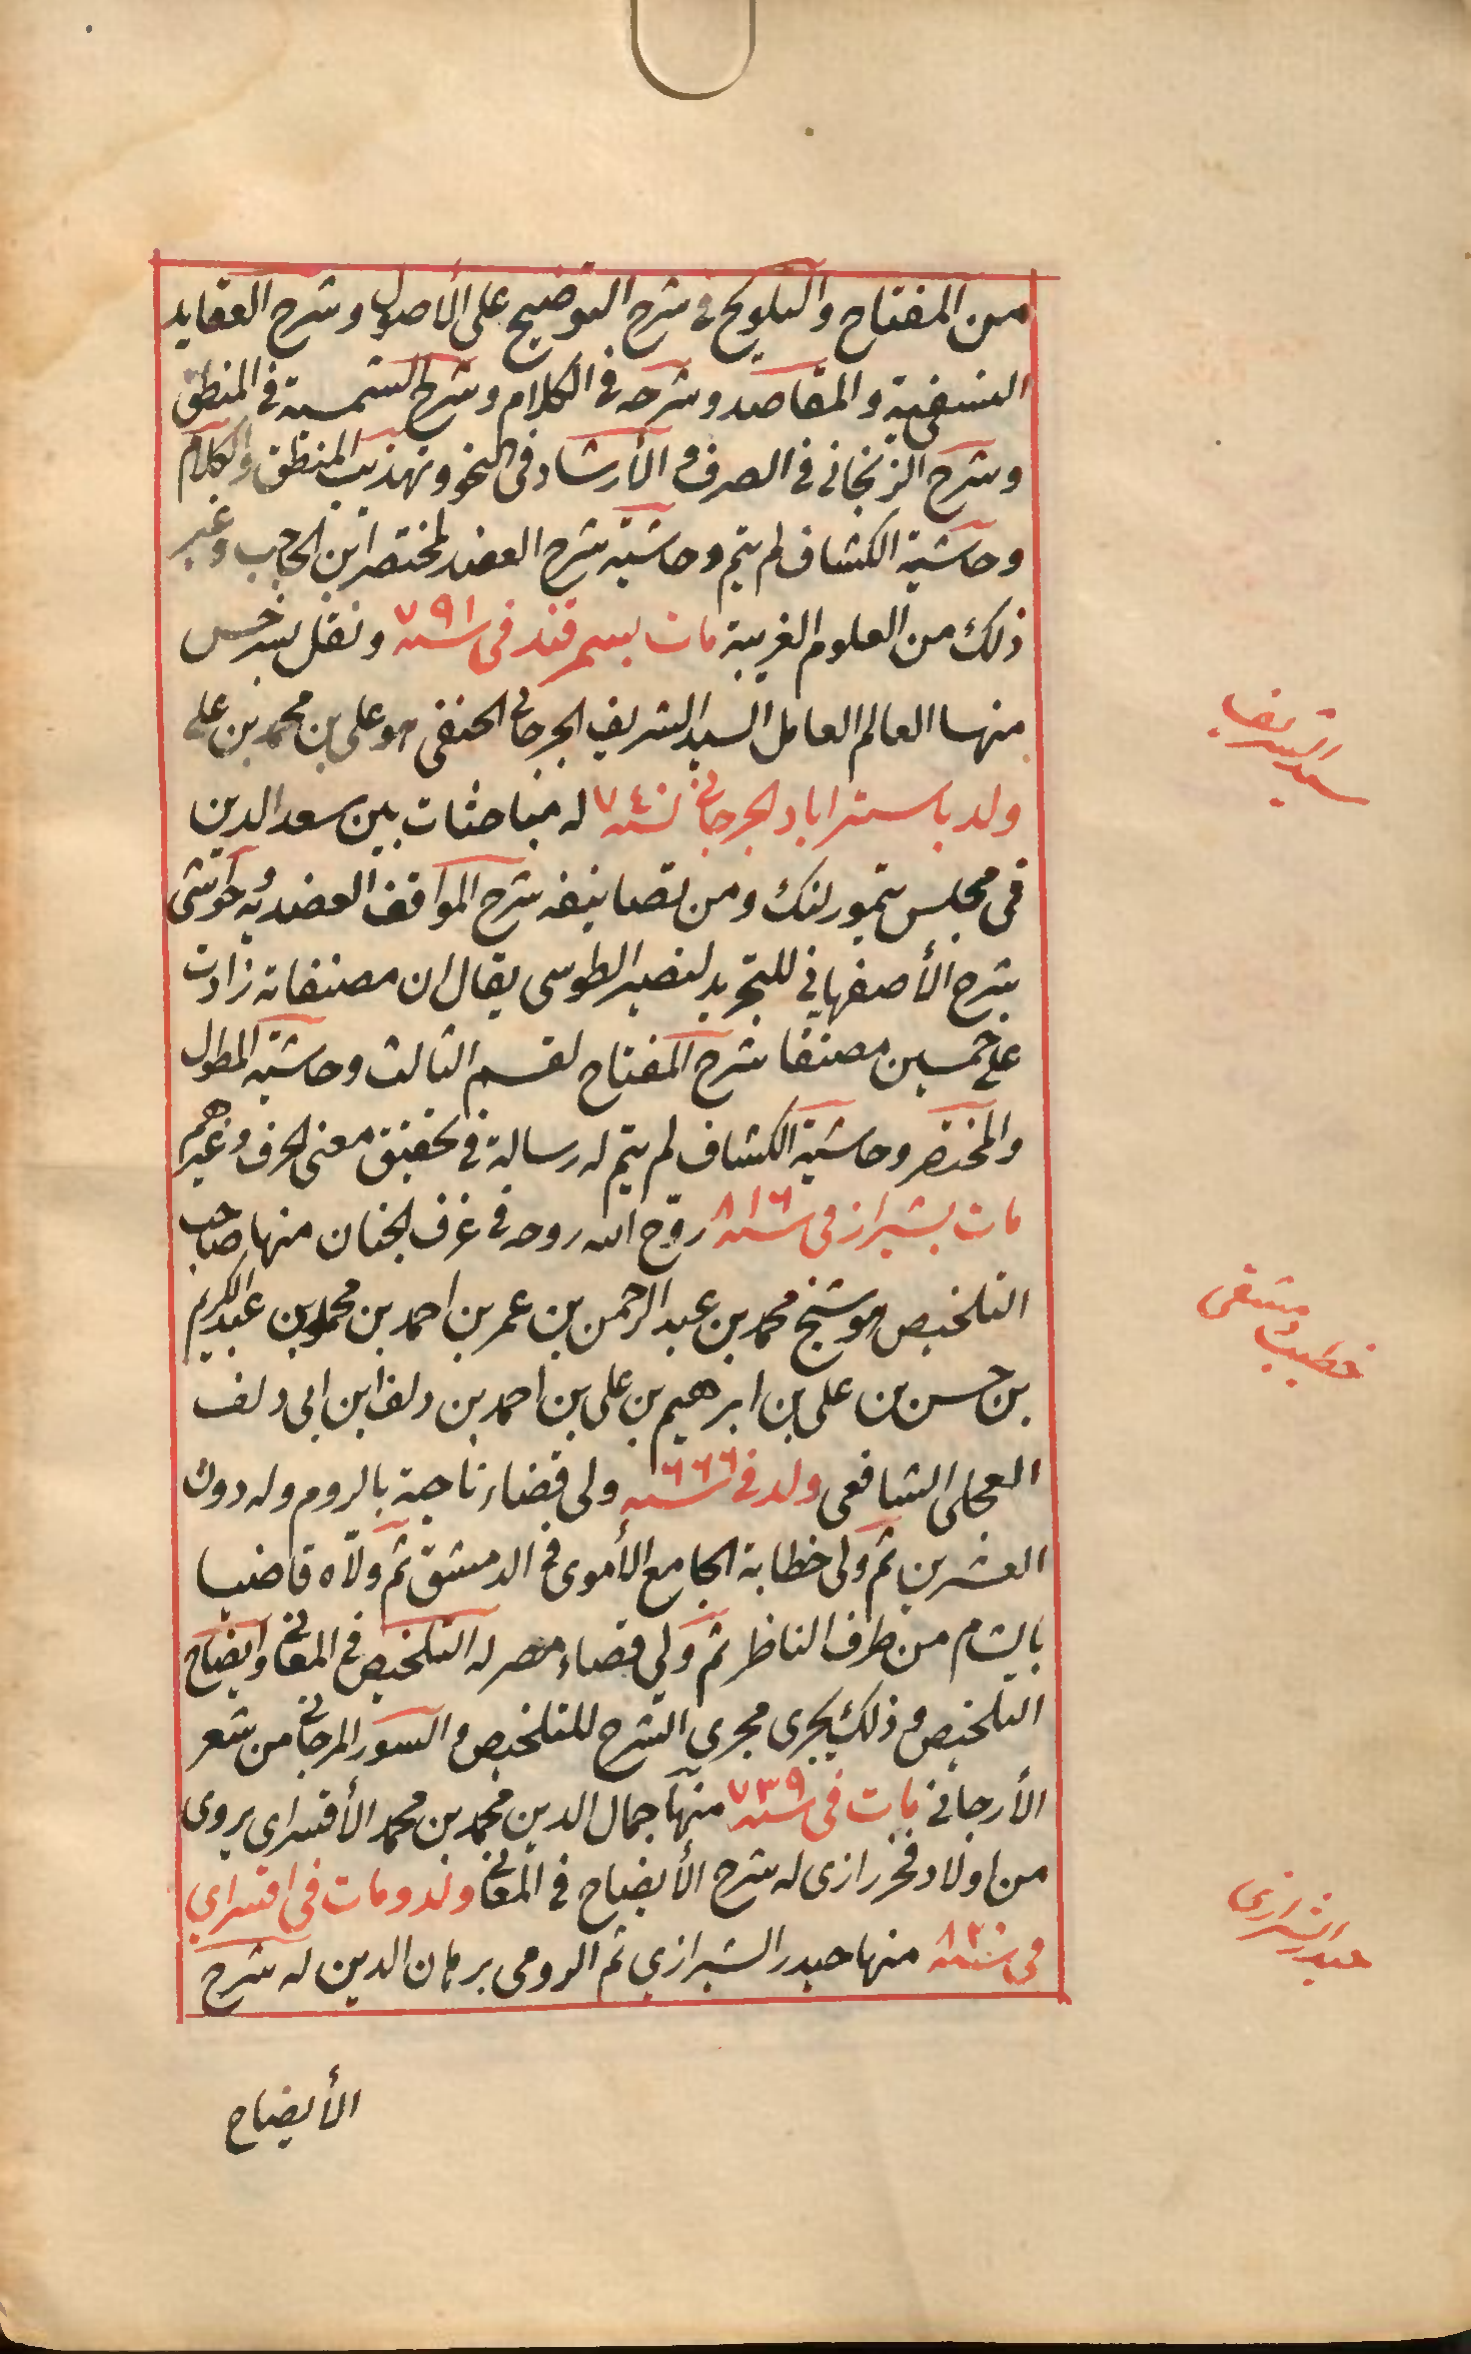 من المفتاح والتلويح فى شرح التوضيح على الأصول وشرح العقايد
النسفية والمقاصد وشرحه فى الكلام وشرح الشمسية فى المنطق
وشرح الزنجانى فى الصرف و الأرشاد فى النحو وتهذيب المنطق والكلام
وحاشية الكشاف لم يتم وحاشية شرح العضد لمختصر ابن الحاجب وغير
ذلك من العلوم الغريبة مات بسمرقند فى سنه ٧٩١ ونقل بسرخس
منها العالم العامل السيد الشريف الجرجانى الحنفى هو على بن محمد بن على
سيد الشريف
ولد باستراباد الجرجانى سنه ٧٤٠ له مباحثات بين سعد الدين
فى مجلس تيمورلنك ومن تصانيفه شرح المواقف العضديه حواشى
شرح الأصفهانى للتجريد لنصير الطوسى يقال ان مصنفاته زادت
على خمسين مصنفا شرح المفتاح لقسم الثالث وحاشية المطول
والمختصر وحاشية الكشاف لم يتم له رسالة فى تحقيق معنى الحرف وغيرهم
مات بشيراز فى سنه ٨١٦ روّح الله روحه فى غرف الجنان منها صاحب
التلخيص هو شيخ محمد بن عبد الرحمن بن عمر بن احمد بن محمد بن عبد الكريم
خطيب دمشقى
بن حسن بن على بن ابرهيم بن على بن احمد بن دلف ابن ابى دلف
العجلى الشافعى ولد فى سنه ٦٦٦ ولى قضاء ناحية بالروم وله دون
العشرين ثم ولى خطابة الجامع الأموى فى الدمشق ثم ولّاه قاضيا
بالشام من طرف الناظر ثم ولى قضاء مصر له التلخيص فى المعانى وايضاح
التلخيص و ذلك يجرى مجرى الشرح للتلخيص و السور المرجانى من شعر
الأرجانى مات فى سنه ٧٣٩ منها جمال الدين محمد بن محمد الأقسراى يروى
من اولاد فخر رازى له شرح الأيضاح فى المعانى ولد ومات فى اقسراى
فى سنه ٨٢٠ منها حيدر الشيرازى ثم الرومى برهان الدين له شرح
حيدر الشيرازى
الأيضاح